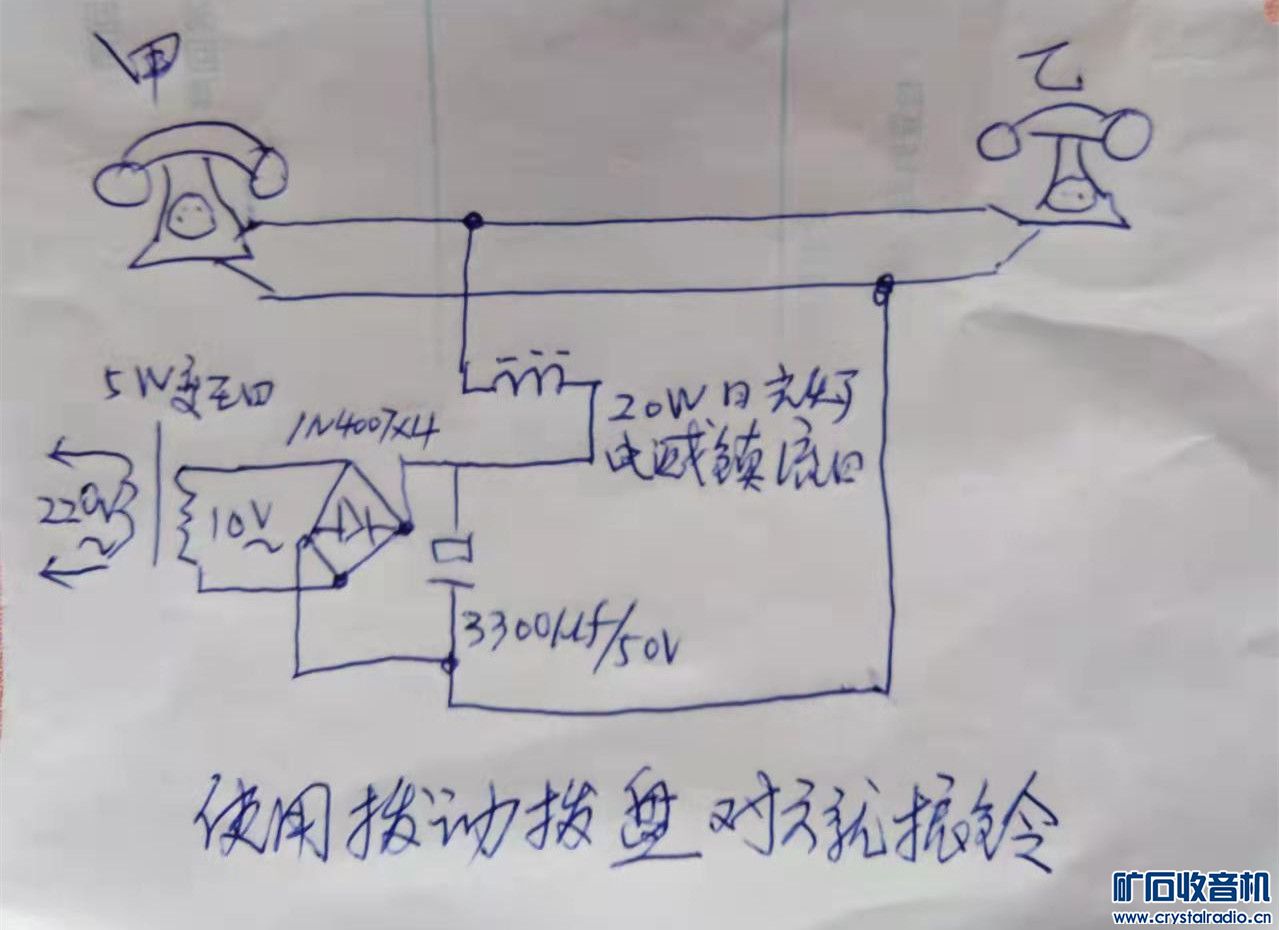 甲
乙
5W变压口
1N4007×4
20W日光灯
电感镇流口
220V
~
10V
~
3300μf/50V
使用拨动拨盘对方就振铃
矿石收音机
www.crystalradio.cn